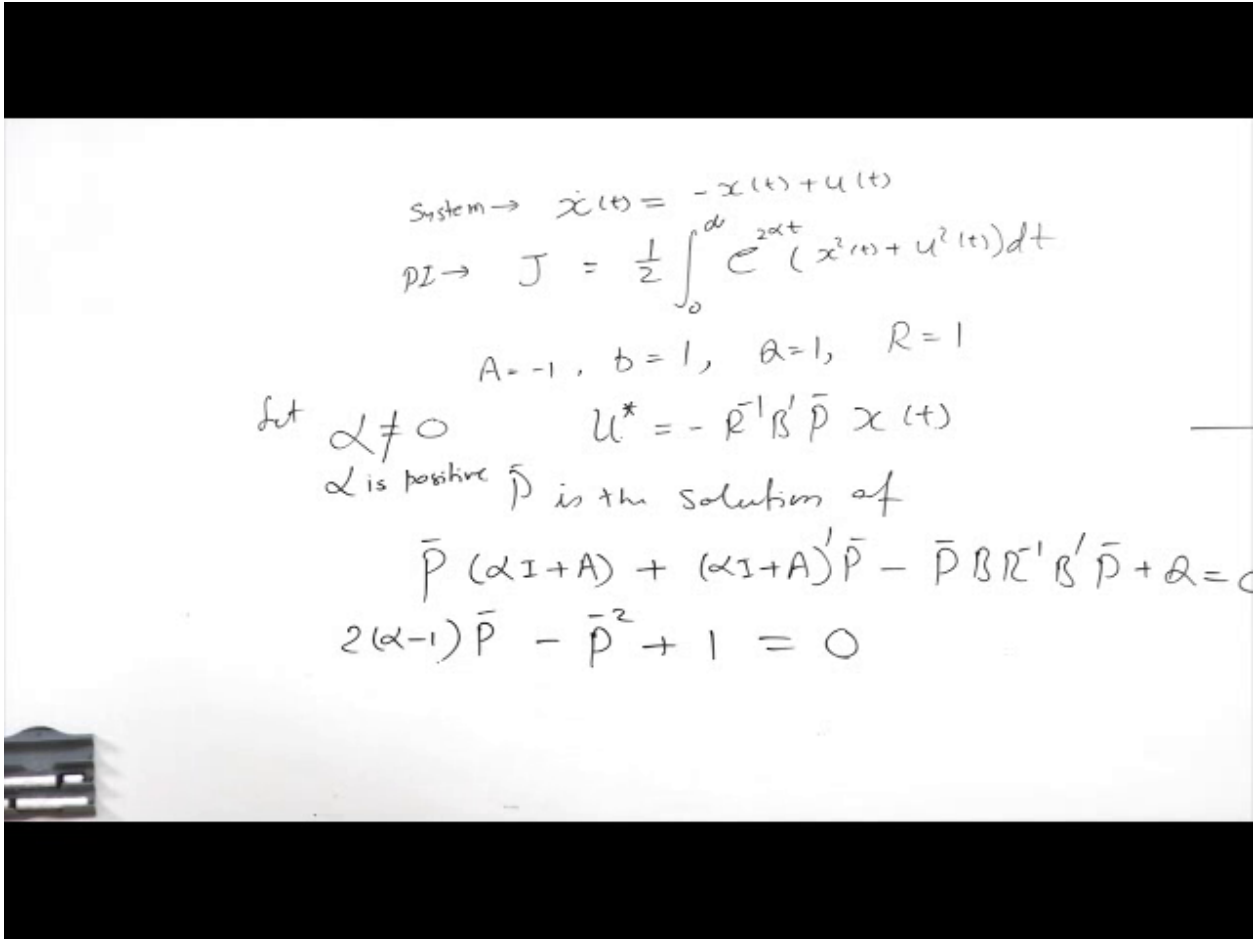 System → ẋ(t) = -x(t) + u(t)
PI → J = 1/2 ∫₀^α e^{2αt} (x²(t) + u²(t)) dt
A = -1, b = 1, Q = 1, R = 1
Let α ≠ 0 U* = - R⁻¹B'P̄ x(t)
α is positive P̄ is the solution of
P̄ (αI + A) + (αI + A)'P̄ - P̄BR⁻¹B'P̄ + Q = 0
2(α-1)P̄ - P̄² + 1 = 0